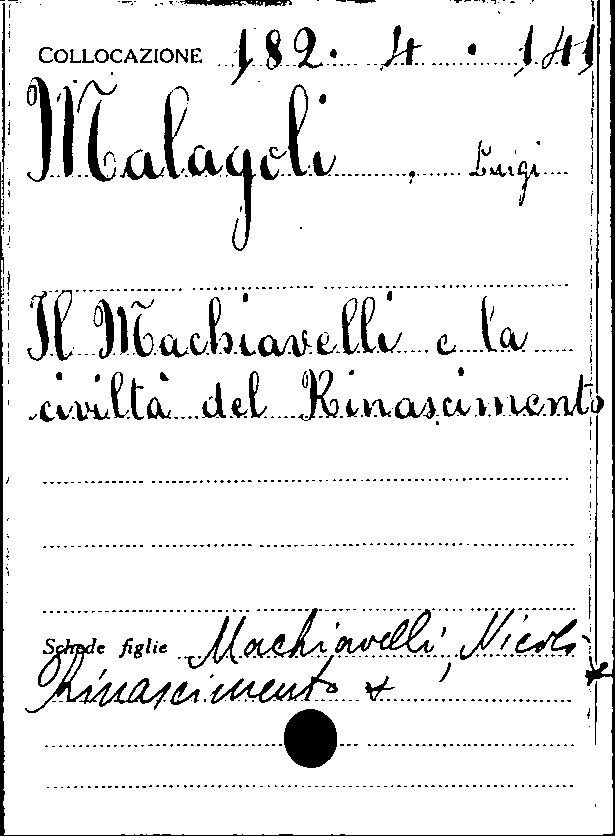 COLLOCAZIONE 182. 4. 141
Malagoli, Luigi
Il Machiavelli e la
civiltà del Rinascimento
Schede figlie Machiavelli, Nicolò
Rinascimento